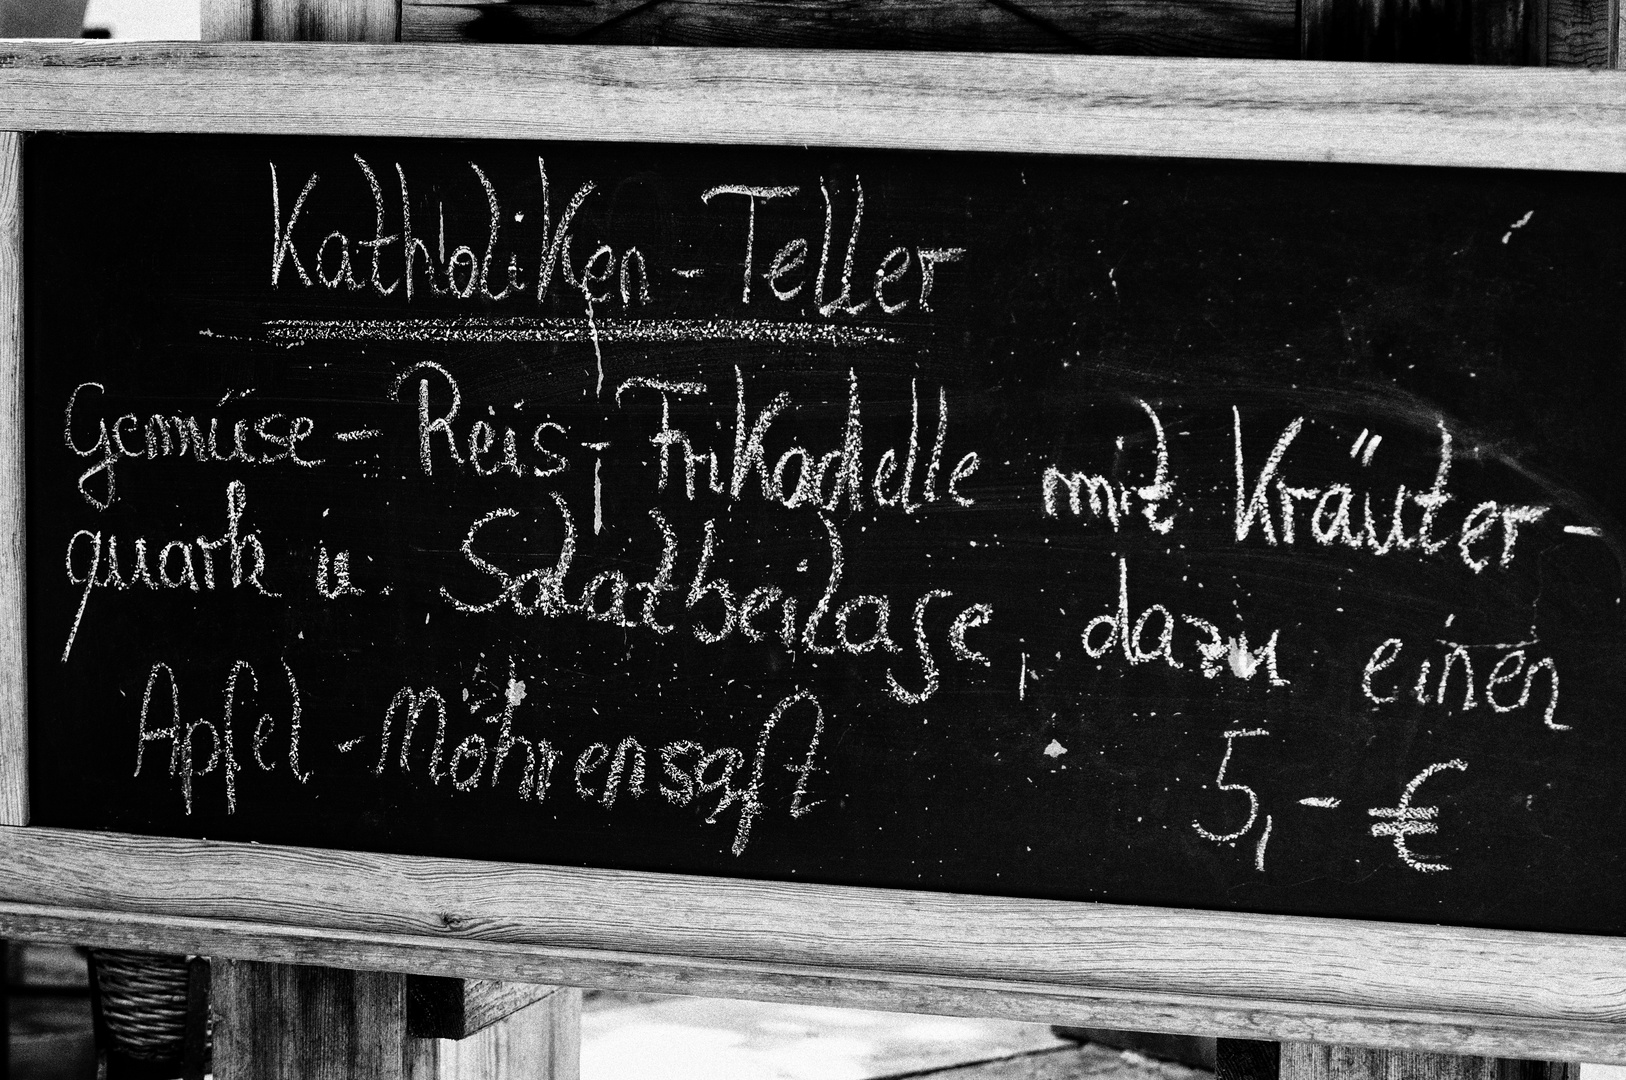 Katholiken-Teller
Gemüse-Reis-Frikadelle mit Kräuter-
quark u. Salatbeilage, dazu einen
Apfel-Möhrensaft 5,- €